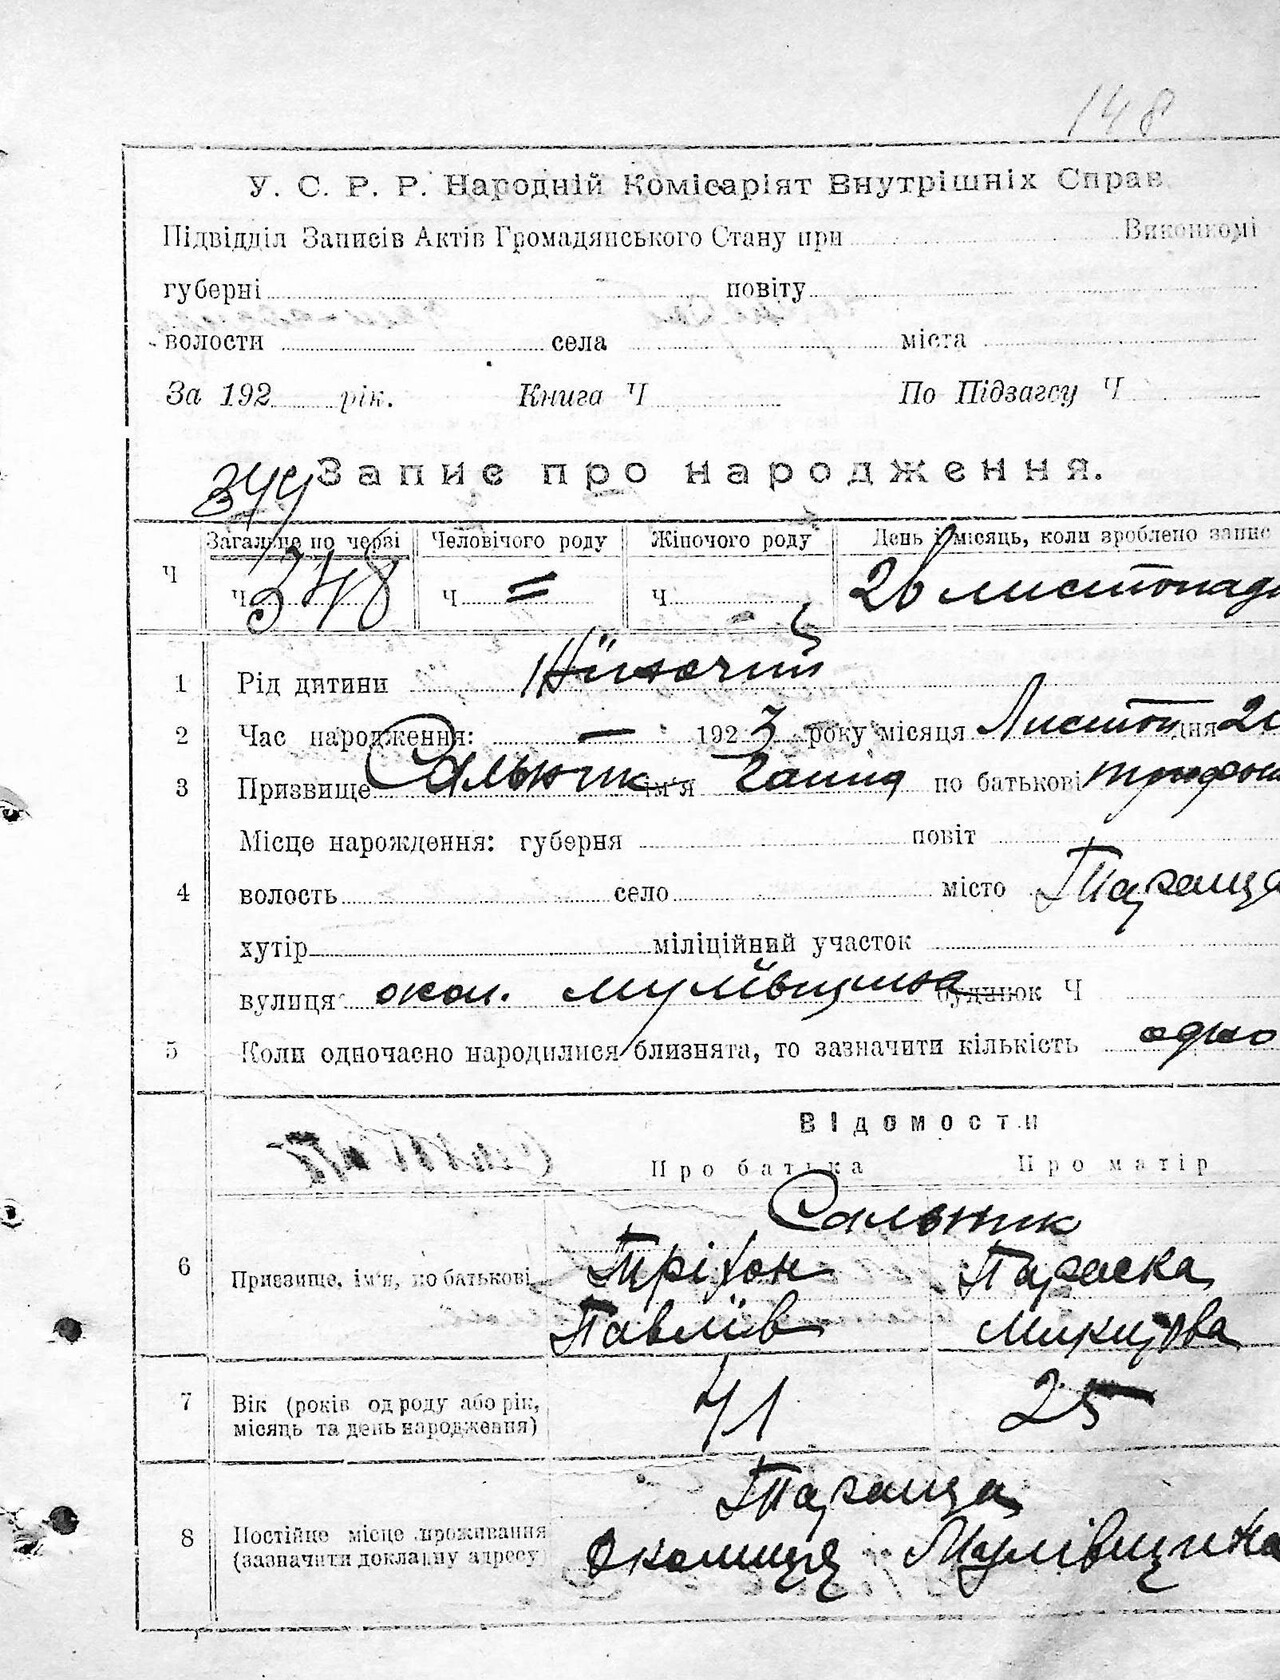 148
У. С. Р. Р. Народній Комісаріят Внутрішніх Справ
Підвідділ Записів Актів Громадянського Стану при Виконкомі
губерні повіту
волости села міста
За 192 рік. Книга Ч По Підзагсу Ч
Запис про народження.
344
Загальне по черзі Человічого роду Жіночого роду День і місяць, коли зроблено запис
Ч Ч 348 Ч = Ч 26 листопада
1 Рід дитини Жіночий
2 Час народження: — 1923 року місяця Листоп дня 20
3 Призвище Сальник ім'я Ганна по батькові
Місце народження: губерня повіт
4 волость село місто Тараща
хутір міліційний участок
вулиця окол. Мулївщина будинок Ч
5 Коли одночасно народилися близнята, то зазначити кількість одно
Відомости
Про батька Про матір
Сальник
6 Призвище, ім'я, по батькові Тріхон Параска
Павлїв
7 Вік (років од роду або рік, 41 25
місяць та день народження)
Тараща
8 Постійне місце проживання
(зазначити докладну адресу) Околиця Мулівщина